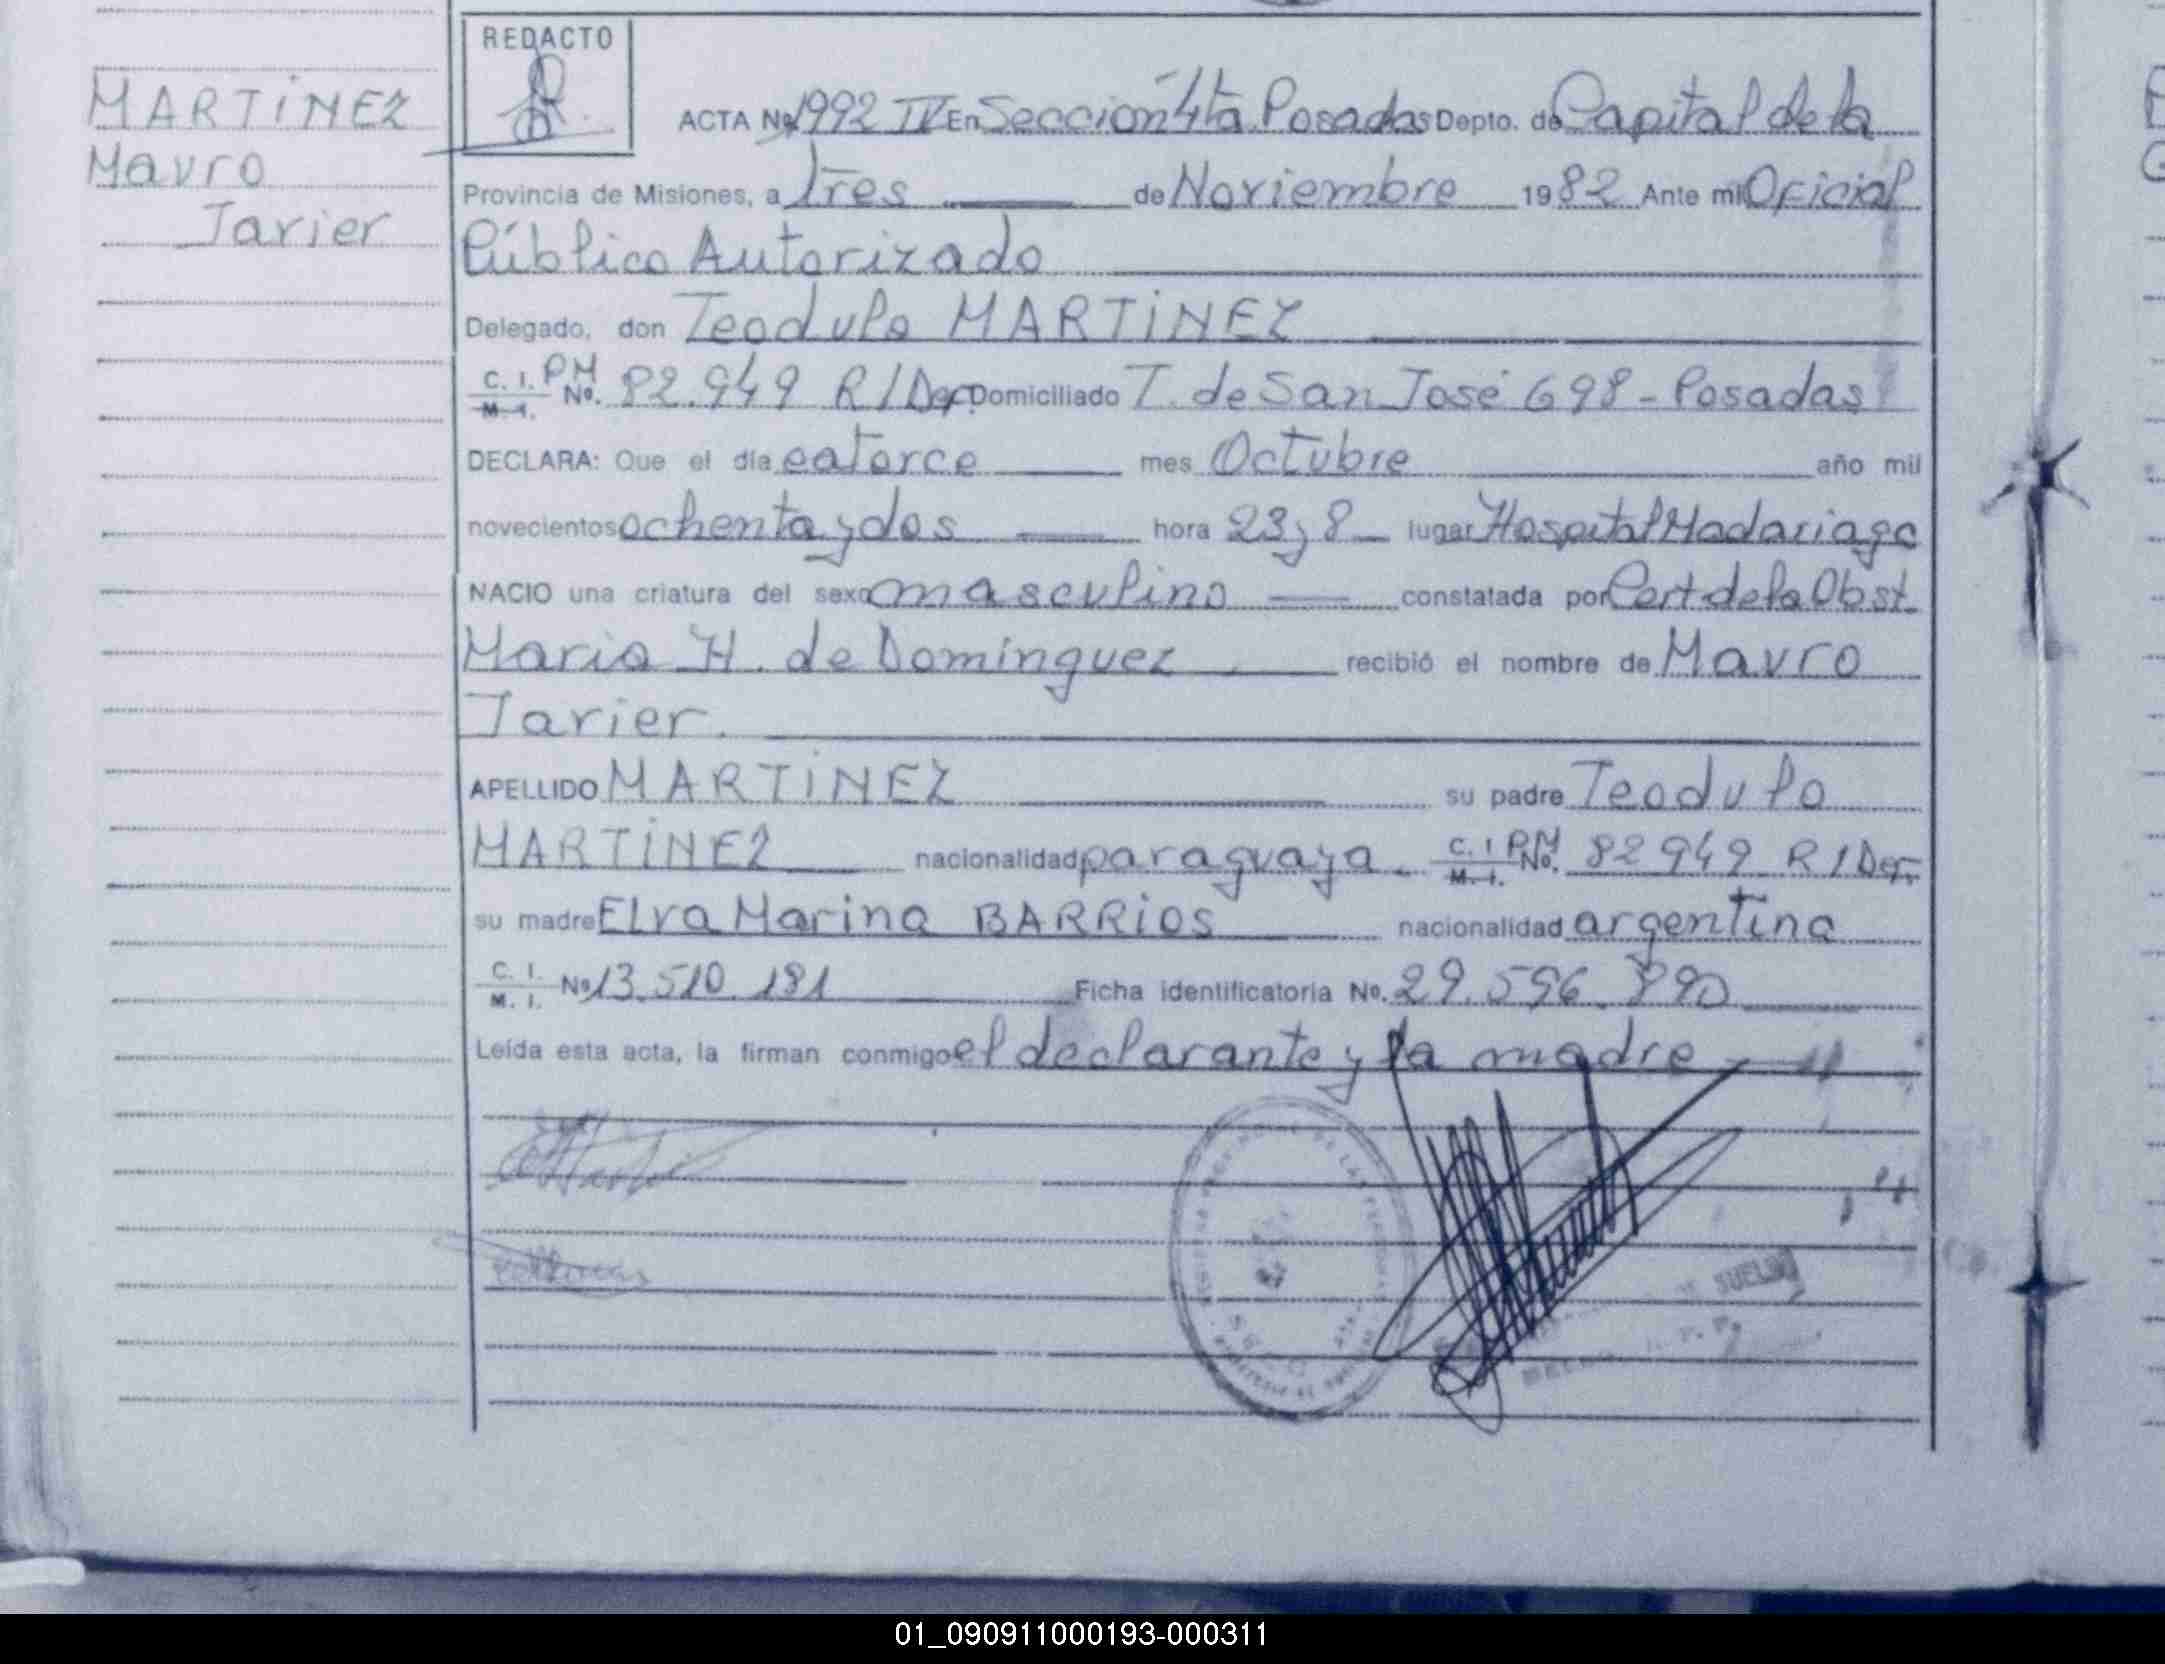 REDACTO
MARTINEZ
Mauro
Javier
ACTA No. 1992 IV En Sección 4ta. Posadas Depto. de Capital de la
Provincia de Misiones, a Tres de Noviembre 1982 Ante mi Oficial
Público Autorizado
Delegado, don Teodulo MARTINEZ
C. I. PM
M. I. No. 82.949 R/Der. Domiciliado T. de San José 698 - Posadas
DECLARA: Que el día catorce mes Octubre año mil
novecientos ochenta y dos hora 23 y 8 lugar Hospital Madariaga
NACIO una criatura del sexo masculino constatada por Cert. de la Obst.
Maria H. de Domínguez recibió el nombre de Mauro
Javier.
APELLIDO MARTINEZ su padre Teodulo
MARTINEZ nacionalidad paraguaya C. I. PM M. I. No. 82949 R/Der.
su madre Elva Marina BARRIOS nacionalidad argentina
C. I.
M. I. No 13.510.181 Ficha identificatoria No. 29.596.890
Leída esta acta, la firman conmigo el declarante y la madre
01_090911000193-000311